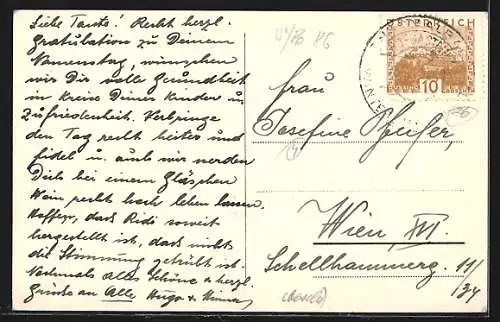 Liebe Tante! Recht herzl.
Gratulation zu Deinem
Namenstag, wünschen
wir Dir volle Gesundheit
im Kreise Deiner Kinder u.
Zufriedenheit. Verbringe
den Tag recht heiter und
fidel u. auch wir werden
Dich bei einem Gläschen
Wein recht hoch leben lassen.
Hoffen, dass Ridi soweit
hergestellt ist, dass nicht
die Stimmung getrübt ist.
Nochmals alles Schöne u. herzl.
Grüsse an Alle Hugo u.
ÖSTERREICH
10
Frau
Josefine Pfeifer,
Wien, III.
Schellhammerg. 11/
34